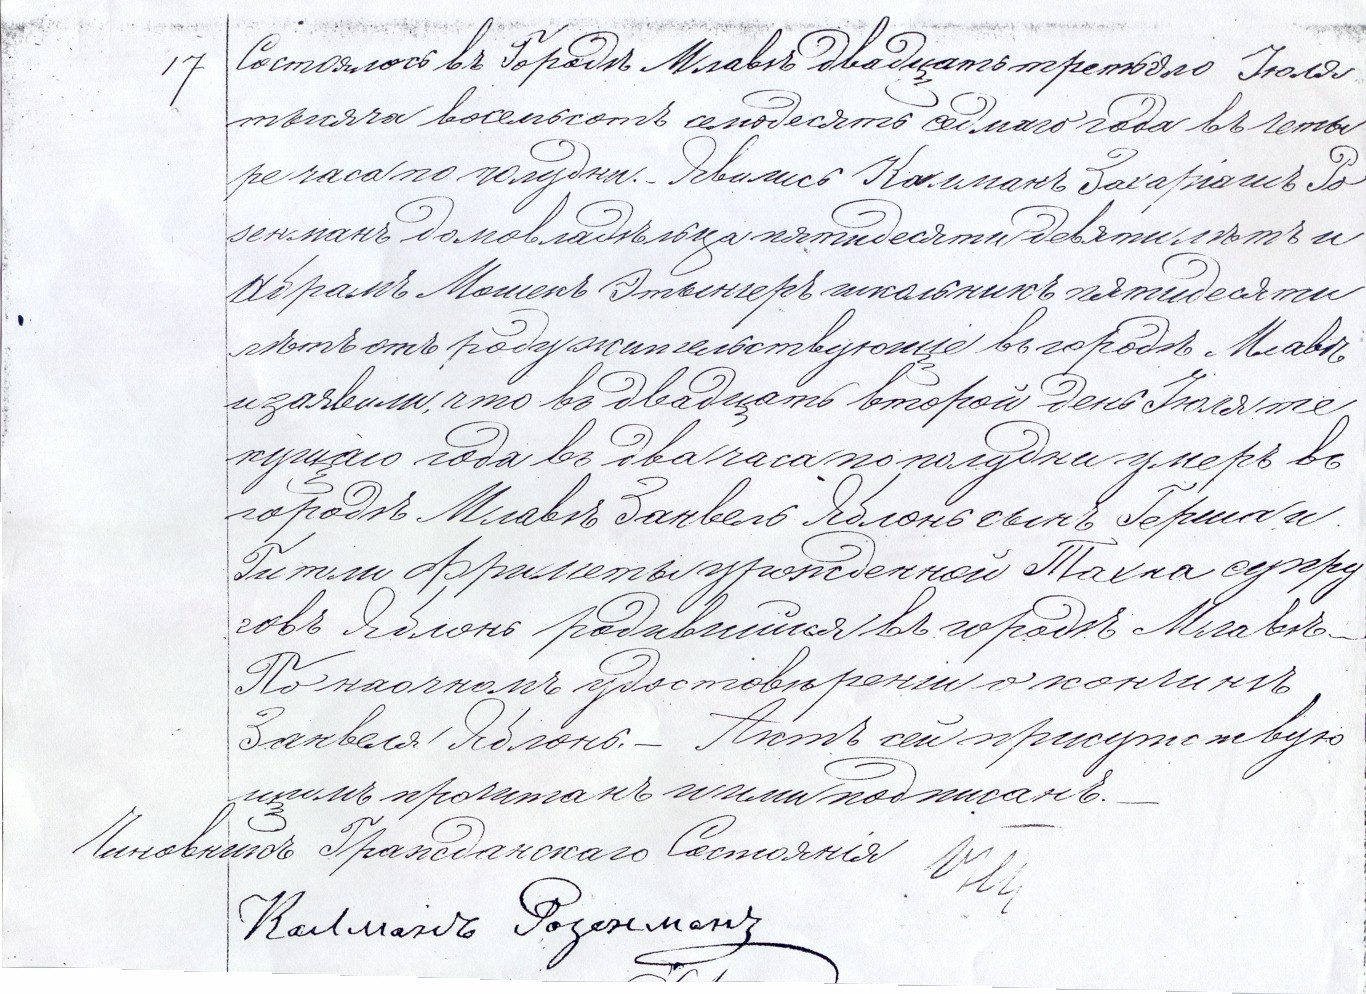 17
Состоялось въ Городѣ Млавѣ двадцать третьяго Іюля
тысяча восемьсотъ семьдесятъ седмаго года въ четы
ре часа по полудни. – Явились Калманъ Захаріашъ Ро
зенманъ домовладѣльца пятидесяти девяти лѣтъ и
Абрамъ Мошекъ Этынгеръ школьникъ пятидесяти
лѣтъ отъ роду жительствующіе въ городѣ Млавѣ
и заявили, что въ двадцать второй день Іюля те
кущаго года въ два часа по полудни умеръ въ
городѣ Млавѣ Занвель Яблонь сынъ Герша и
Гитли Фриметы урожденной Тахна супру
говъ Яблонь родившийся въ городѣ Млавѣ –
По наочномъ удостовѣреніи о кончинѣ
Занвеля Яблонь. – Актъ сей присутствую
щимъ прочитанъ и ими подписанъ. –
Чиновникъ Гражданскаго Состоянія
Калманъ Розенманъ